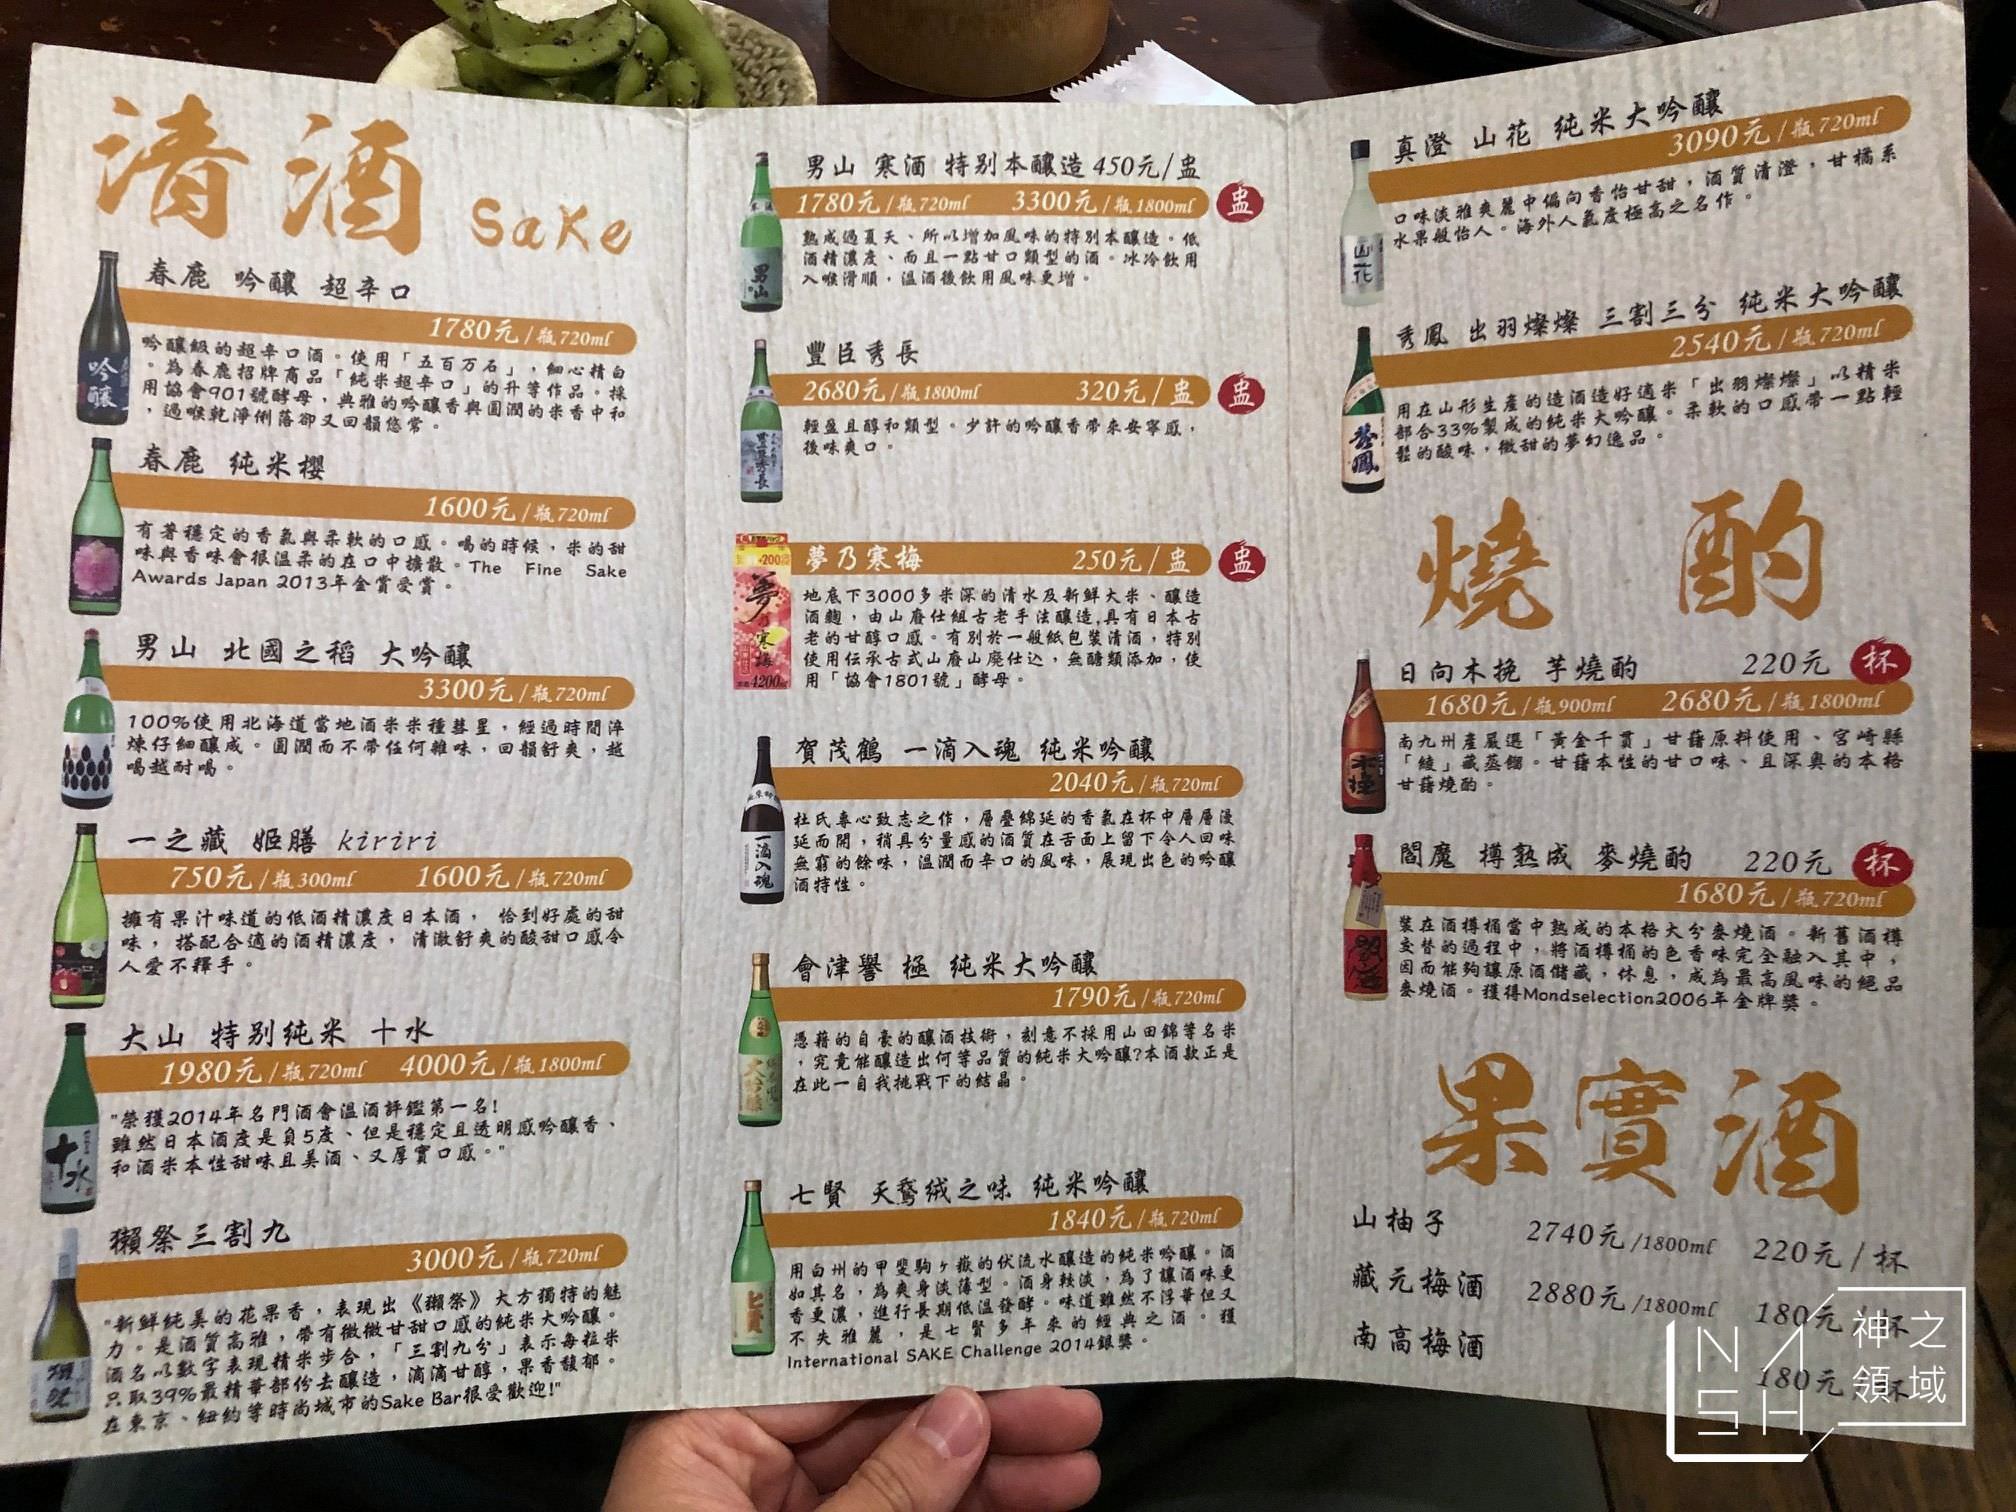 清酒 Sake
春鹿 吟釀 超辛口
1780元/瓶720ml
吟釀級的超辛口酒。使用「五百万石」,細心精白
。為春鹿招牌商品「純米超辛口」的升等作品。採
用協會901號酵母,典雅的吟釀香與圓潤的米香中和
,過喉乾淨俐落卻又回韻悠常。
春鹿 純米櫻
1600元/瓶720ml
有著穩定的香氣與柔軟的口感。喝的時候,米的甜
味與香味會很溫柔的在口中擴散。The Fine Sake
Awards Japan 2013年金賞受賞。
男山 北國之稻 大吟釀
3300元/瓶720ml
100%使用北海道當地酒米米種彗星,經過時間淬
煉仔細釀成。圓潤而不帶任何雜味,回韻舒爽,越
喝越耐喝。
一之藏 姬膳 kiriri
750元/瓶300ml 1600元/瓶720ml
擁有果汁味道的低酒精濃度日本酒, 恰到好處的甜
味, 搭配合適的酒精濃度, 清澈舒爽的酸甜口感令
人愛不釋手。
大山 特別純米 十水
1980元/瓶720ml 4000元/瓶1800ml
"榮獲2014年名門酒會溫酒評鑑第一名!
雖然日本酒度是負5度、但是穩定且透明感吟釀香、
和酒米本性甜味且美酒、又厚實口感。"
獺祭三割九
3000元/瓶720ml
"新鮮純美的花果香,表現出《獺祭》大方獨特的魅
力。是酒質高雅,帶有微微甘甜口感的純米大吟釀。
酒名以數字表現精米步合,「三割九分」表示每粒米
只取39%最精華部份去釀造,滴滴甘醇,果香馥郁。
在東京、紐約等時尚城市的Sake Bar很受歡迎!"
男山 寒酒 特別本釀造 450元/盅
1780元/瓶720ml 3300元/瓶1800ml 盅
熟成過夏天、所以增加風味的特別本釀造。低
酒精濃度、而且一點甘口類型的酒。冰冷飲用
入喉滑順,溫酒後飲用風味更增。
豐臣秀長
2680元/瓶1800ml 320元/盅 盅
輕盈且醇和類型。少許的吟釀香帶來安寧感,
後味爽口。
夢乃寒梅 250元/盅 盅
地底下3000多米深的清水及新鮮大米、釀造
酒麴,由山廢仕組古老手法釀造,具有日本古
老的甘醇口感。有別於一般紙包裝清酒,特別
使用伝承古式山廢山廃仕込,無醣類添加,使
用「協會1801號」酵母。
賀茂鶴 一滴入魂 純米吟釀
2040元/瓶720ml
杜氏專心致志之作,層疊綿延的香氣在杯中層層漫
延而開,稍具分量感的酒質在舌面上留下令人回味
無窮的餘味,溫潤而辛口的風味,展現出色的吟釀
酒特性。
會津譽 極 純米大吟釀
1790元/瓶720ml
憑藉的自豪的釀酒技術,刻意不採用山田錦等名米
,究竟能釀造出何等品質的純米大吟釀?本酒款正是
在此一自我挑戰下的結晶。
七賢 天鵞絨之味 純米吟釀
1840元/瓶720ml
用白州的甲斐駒ヶ嶽的伏流水釀造的純米吟釀。酒
如其名,為爽身淡薄型。酒身較淡,為了讓酒味更
香更濃,進行長期低溫發酵。味道雖然不浮華但又
不失雅麗,是七賢多年來的經典之酒。獲
International SAKE Challenge 2014銀獎。
真澄 山花 純米大吟釀
3090元/瓶720ml
口味淡雅爽麗中偏向香怡甘甜,酒質清澄,甘橘系
水果般怡人。海外人氣度極高之名作。
秀鳳 出羽燦燦 三割三分 純米大吟釀
2540元/瓶720ml
用在山形生產的造酒造好適米「出羽燦燦」以精米
部合33%製成的純米大吟釀。柔軟的口感帶一點輕
鬆的酸味,微甜的夢幻逸品。
燒酌
日向木挽 芋燒酌 220元 杯
1680元/瓶900ml 2680元/瓶1800ml
南九州產嚴選「黃金千貫」甘藷原料使用、宮崎縣
「綾」藏蒸餾。甘藷本性的甘口味、且深奧的本格
甘藷燒酌。
閻魔 樽熟成 麥燒酌 220元 杯
1680元/瓶720ml
裝在酒樽桶當中熟成的本格大分麥燒酒。新舊酒樽
交替的過程中,將酒樽桶的色香味完全融入其中,
因而能夠讓原酒儲藏,休息,成為最高風味的絕品
麥燒酒。獲得Mondselection2006年金牌獎。
果實酒
山柚子 2740元/1800ml 220元/杯
藏元梅酒 2880元/1800ml 180元/杯
南高梅酒 180元/杯
NASH 神之領域